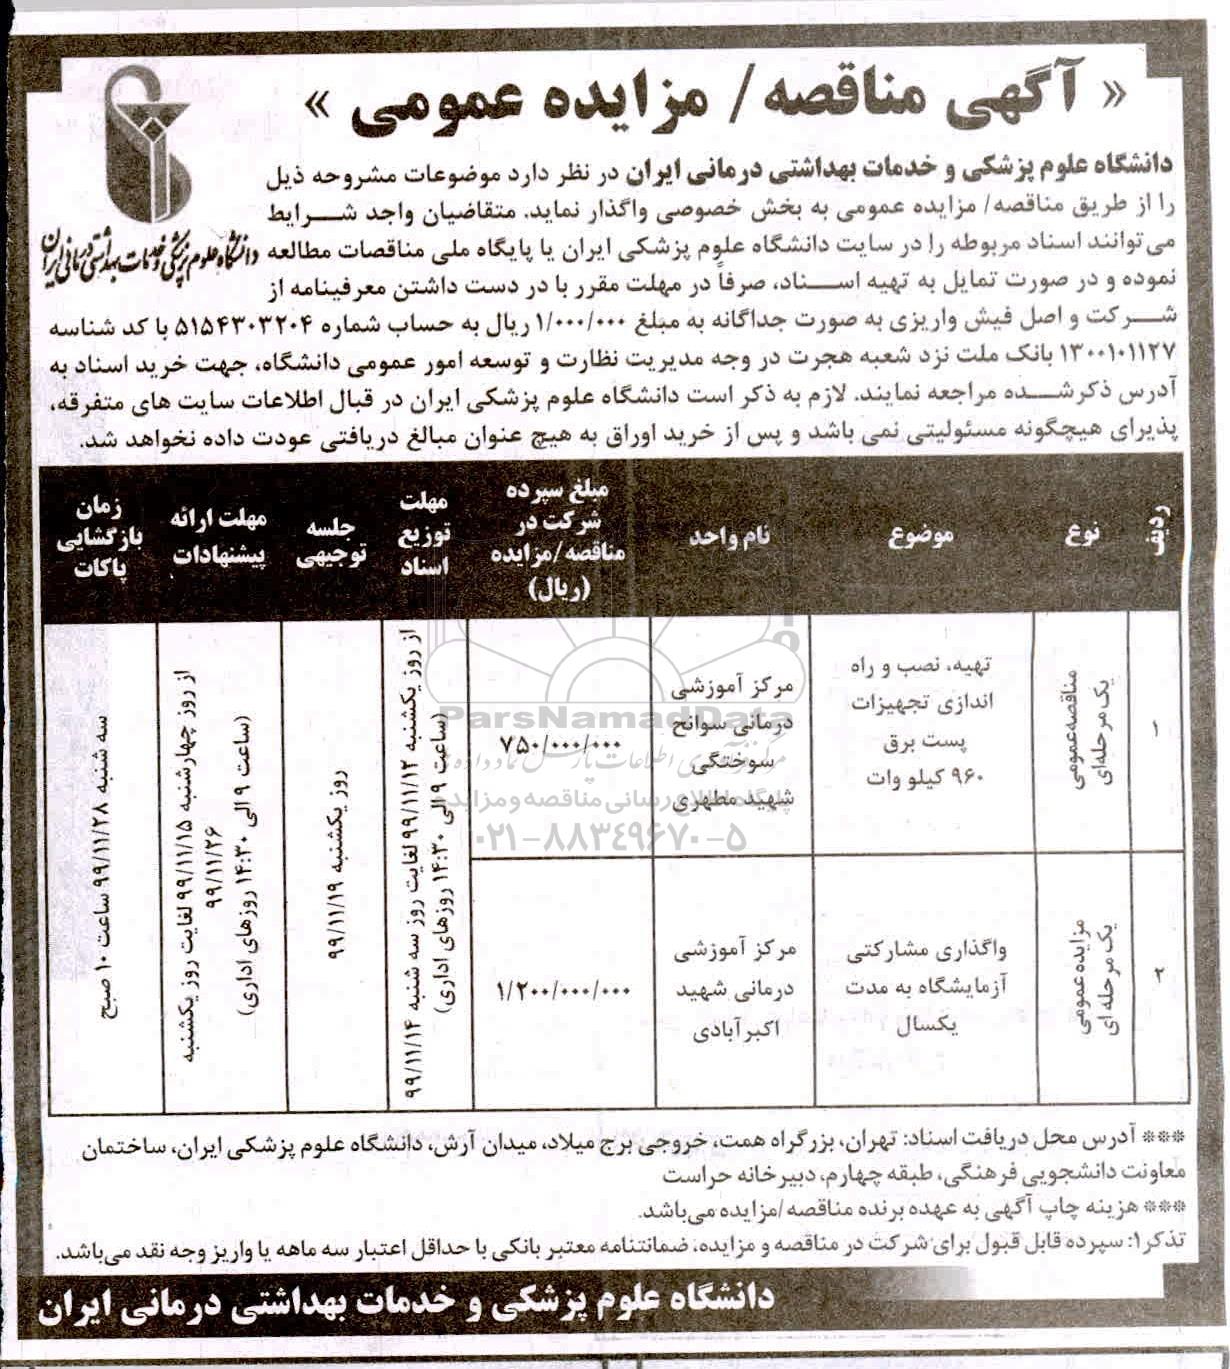 « آگهی مناقصه/ مزایده عمومی »
دانشگاه علوم پزشکی و خدمات بهداشتی درمانی ایران
دانشگاه علوم پزشکی و خدمات بهداشتی درمانی ایران در نظر دارد موضوعات مشروحه ذیل
را از طریق مناقصه/ مزایده عمومی به بخش خصوصی واگذار نماید. متقاضیان واجد شرایط
می‌توانند اسناد مربوطه را در سایت دانشگاه علوم پزشکی ایران یا پایگاه ملی مناقصات مطالعه
نموده و در صورت تمایل به تهیه اسناد، صرفاً در مهلت مقرر با در دست داشتن معرفینامه از
شرکت و اصل فیش واریزی به صورت جداگانه به مبلغ ۱/۰۰۰/۰۰۰ ریال به حساب شماره ۵۱۵۴۳۰۳۲۰۴ با کد شناسه
۱۳۰۰۱۰۱۱۲۷ بانک ملت نزد شعبه هجرت در وجه مدیریت نظارت و توسعه امور عمومی دانشگاه، جهت خرید اسناد به
آدرس ذکرشده مراجعه نمایند. لازم به ذکر است دانشگاه علوم پزشکی ایران در قبال اطلاعات سایت های متفرقه،
پذیرای هیچگونه مسئولیتی نمی باشد و پس از خرید اوراق به هیچ عنوان مبالغ دریافتی عودت داده نخواهد شد.
ردیف
نوع
موضوع
نام واحد
مبلغ سپرده
شرکت در
مناقصه/مزایده
(ریال)
مهلت
توزیع
اسناد
جلسه
توجیهی
مهلت ارائه
پیشنهادات
زمان
بازگشایی
پاکات
۱
مناقصه عمومی
یک مرحله‌ای
تهیه، نصب و راه
اندازی تجهیزات
پست برق
۹۶۰ کیلو وات
مرکز آموزشی
درمانی سوانح
سوختگی
شهید مطهری
۷۵۰/۰۰۰/۰۰۰
از روز یکشنبه ۹۹/۱۱/۱۲ لغایت روز سه شنبه ۹۹/۱۱/۱۴
(ساعت ۹ الی ۱۴:۳۰ روزهای اداری)
روز یکشنبه ۹۹/۱۱/۱۹
از روز چهارشنبه ۹۹/۱۱/۱۵ لغایت روز یکشنبه
۹۹/۱۱/۲۶
(ساعت ۹ الی ۱۴:۳۰ روزهای اداری)
سه شنبه ۹۹/۱۱/۲۸ ساعت ۱۰ صبح
۲
مزایده عمومی
یک مرحله ای
واگذاری مشارکتی
آزمایشگاه به مدت
یکسال
مرکز آموزشی
درمانی شهید
اکبرآبادی
۱/۲۰۰/۰۰۰/۰۰۰
ParsNamadData
پایگاه اطلاع رسانی مناقصه و مزایده
۰۲۱-۸۸۳۴۹۶۷۰-۵
*** آدرس محل دریافت اسناد: تهران، بزرگراه همت، خروجی برج میلاد، میدان آرش، دانشگاه علوم پزشکی ایران، ساختمان
معاونت دانشجویی فرهنگی، طبقه چهارم، دبیرخانه حراست
*** هزینه چاپ آگهی به عهده برنده مناقصه/مزایده می‌باشد.
تذکر۱: سپرده قابل قبول برای شرکت در مناقصه و مزایده، ضمانتنامه معتبر بانکی با حداقل اعتبار سه ماهه یا واریز وجه نقد می‌باشد.
دانشگاه علوم پزشکی و خدمات بهداشتی درمانی ایران